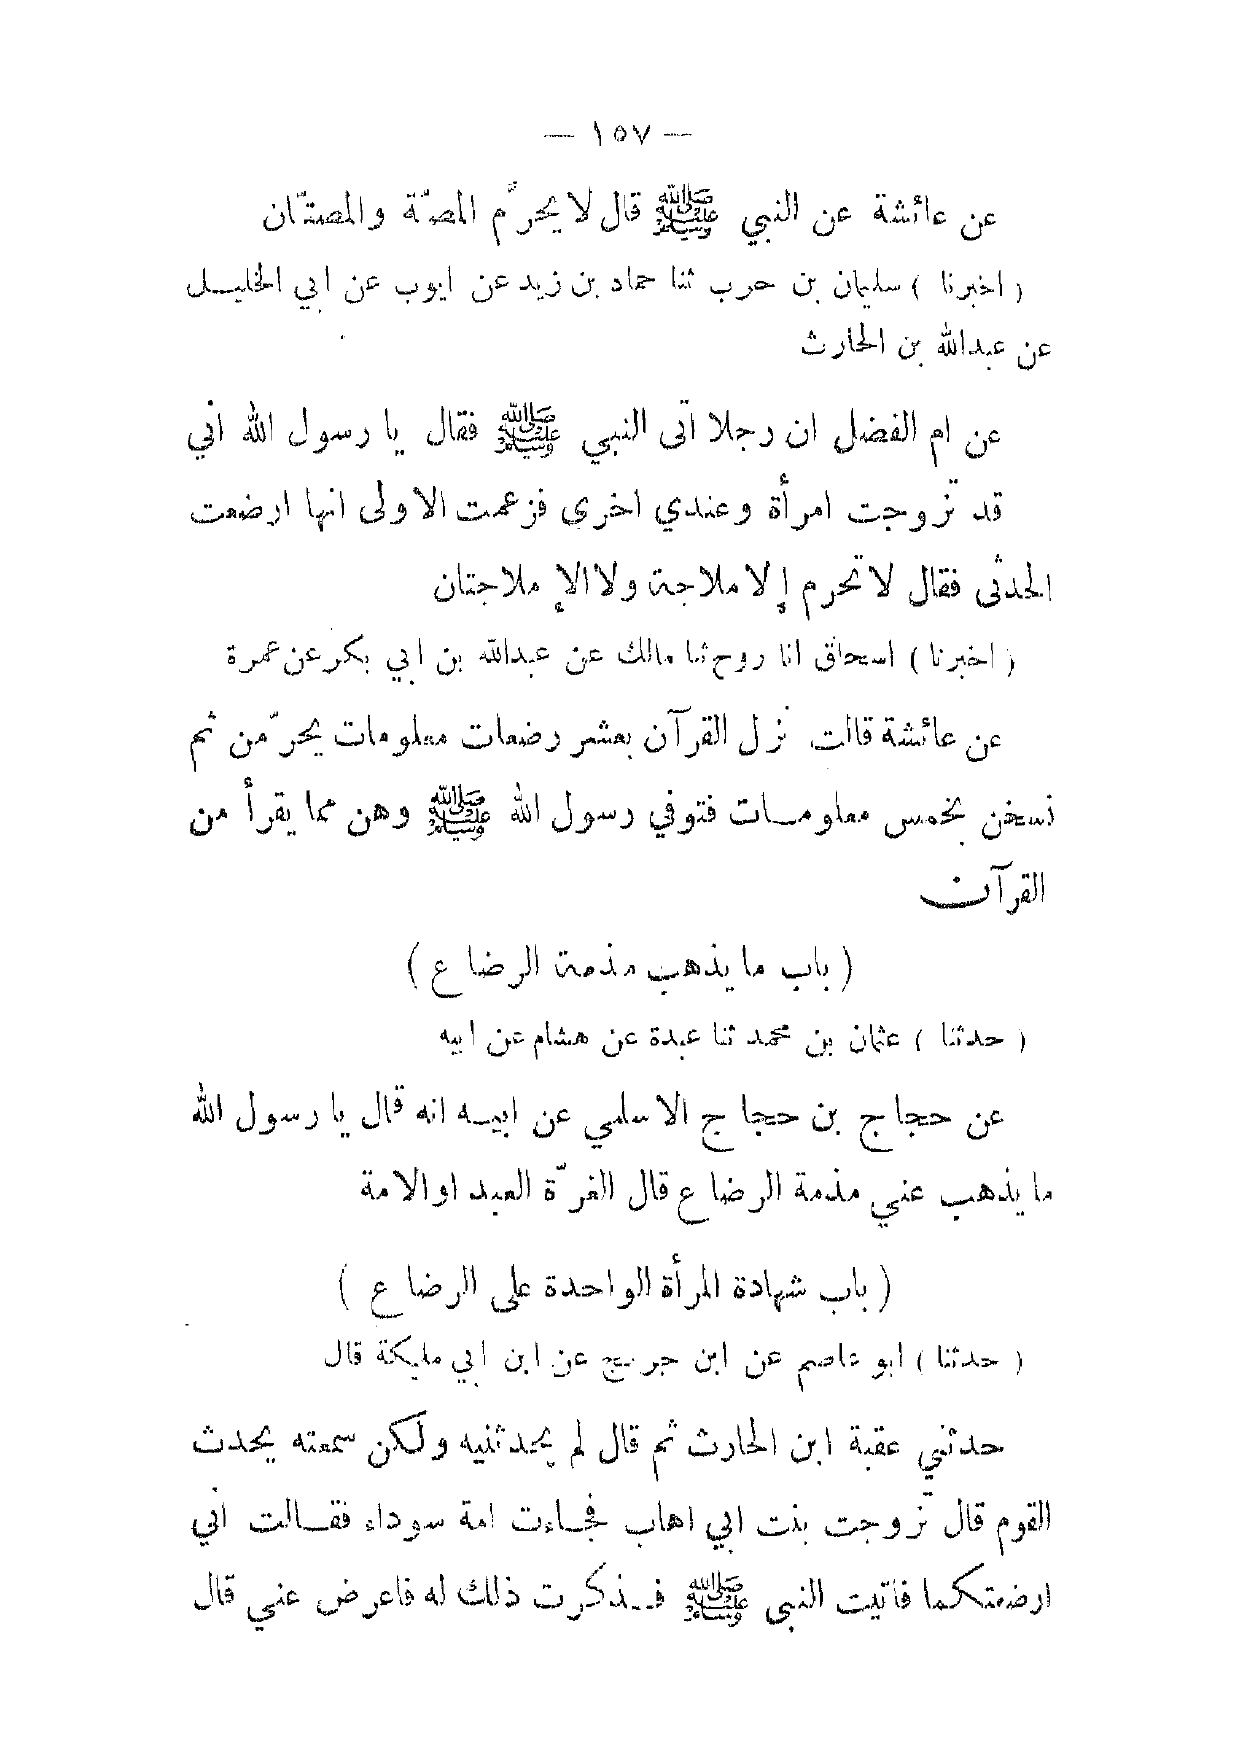 — ١٥٧ —
عن عائشة عن النبي ﷺ قال لا يحرّم المصّة والمصتّان
( اخبرنا ) سليمان بن حرب ثنا حماد بن زيد عن ايوب عن ابي الخليل
عن عبدالله بن الحارث
عن ام الفضل ان رجلا اتى النبي ﷺ فقال يا رسول الله اني
قد تزوجت امرأة وعندي اخرى فزعمت الاولى انها ارضعت
الحدثى فقال لا تحرم إلا ملاجة ولا الإ ملاجتان
( اخبرنا ) اسحاق انا روح ثنا مالك عن عبدالله بن ابي بكر عن عمرة
عن عائشة قالت نزل القرآن بعشر رضعات معلومات يحرّمن ثم
نسخن بخمس معلومات فتوفي رسول الله ﷺ وهن مما يقرأ من
القرآن
( باب ما يذهب مذمة الرضاع )
( حدثنا ) عثمان بن محمد ثنا عبدة عن هشام عن ابيه
عن حجاج بن حجاج الاسلمي عن ابيه انه قال يا رسول الله
ما يذهب عني مذمة الرضاع قال الغرّة العبد او الامة
( باب شهادة المرأة الواحدة على الرضاع )
( حدثنا ) ابو عاصم عن ابن جريج عن ابن ابي مليكة قال
حدثني عقبة ابن الحارث ثم قال لم يحدثنيه ولكن سمعته يحدث
القوم قال تزوجت بنت ابي اهاب فجاءت امة سوداء فقالت اني
ارضعتكما فاتيت النبي ﷺ فذكرت ذلك له فاعرض عني قال